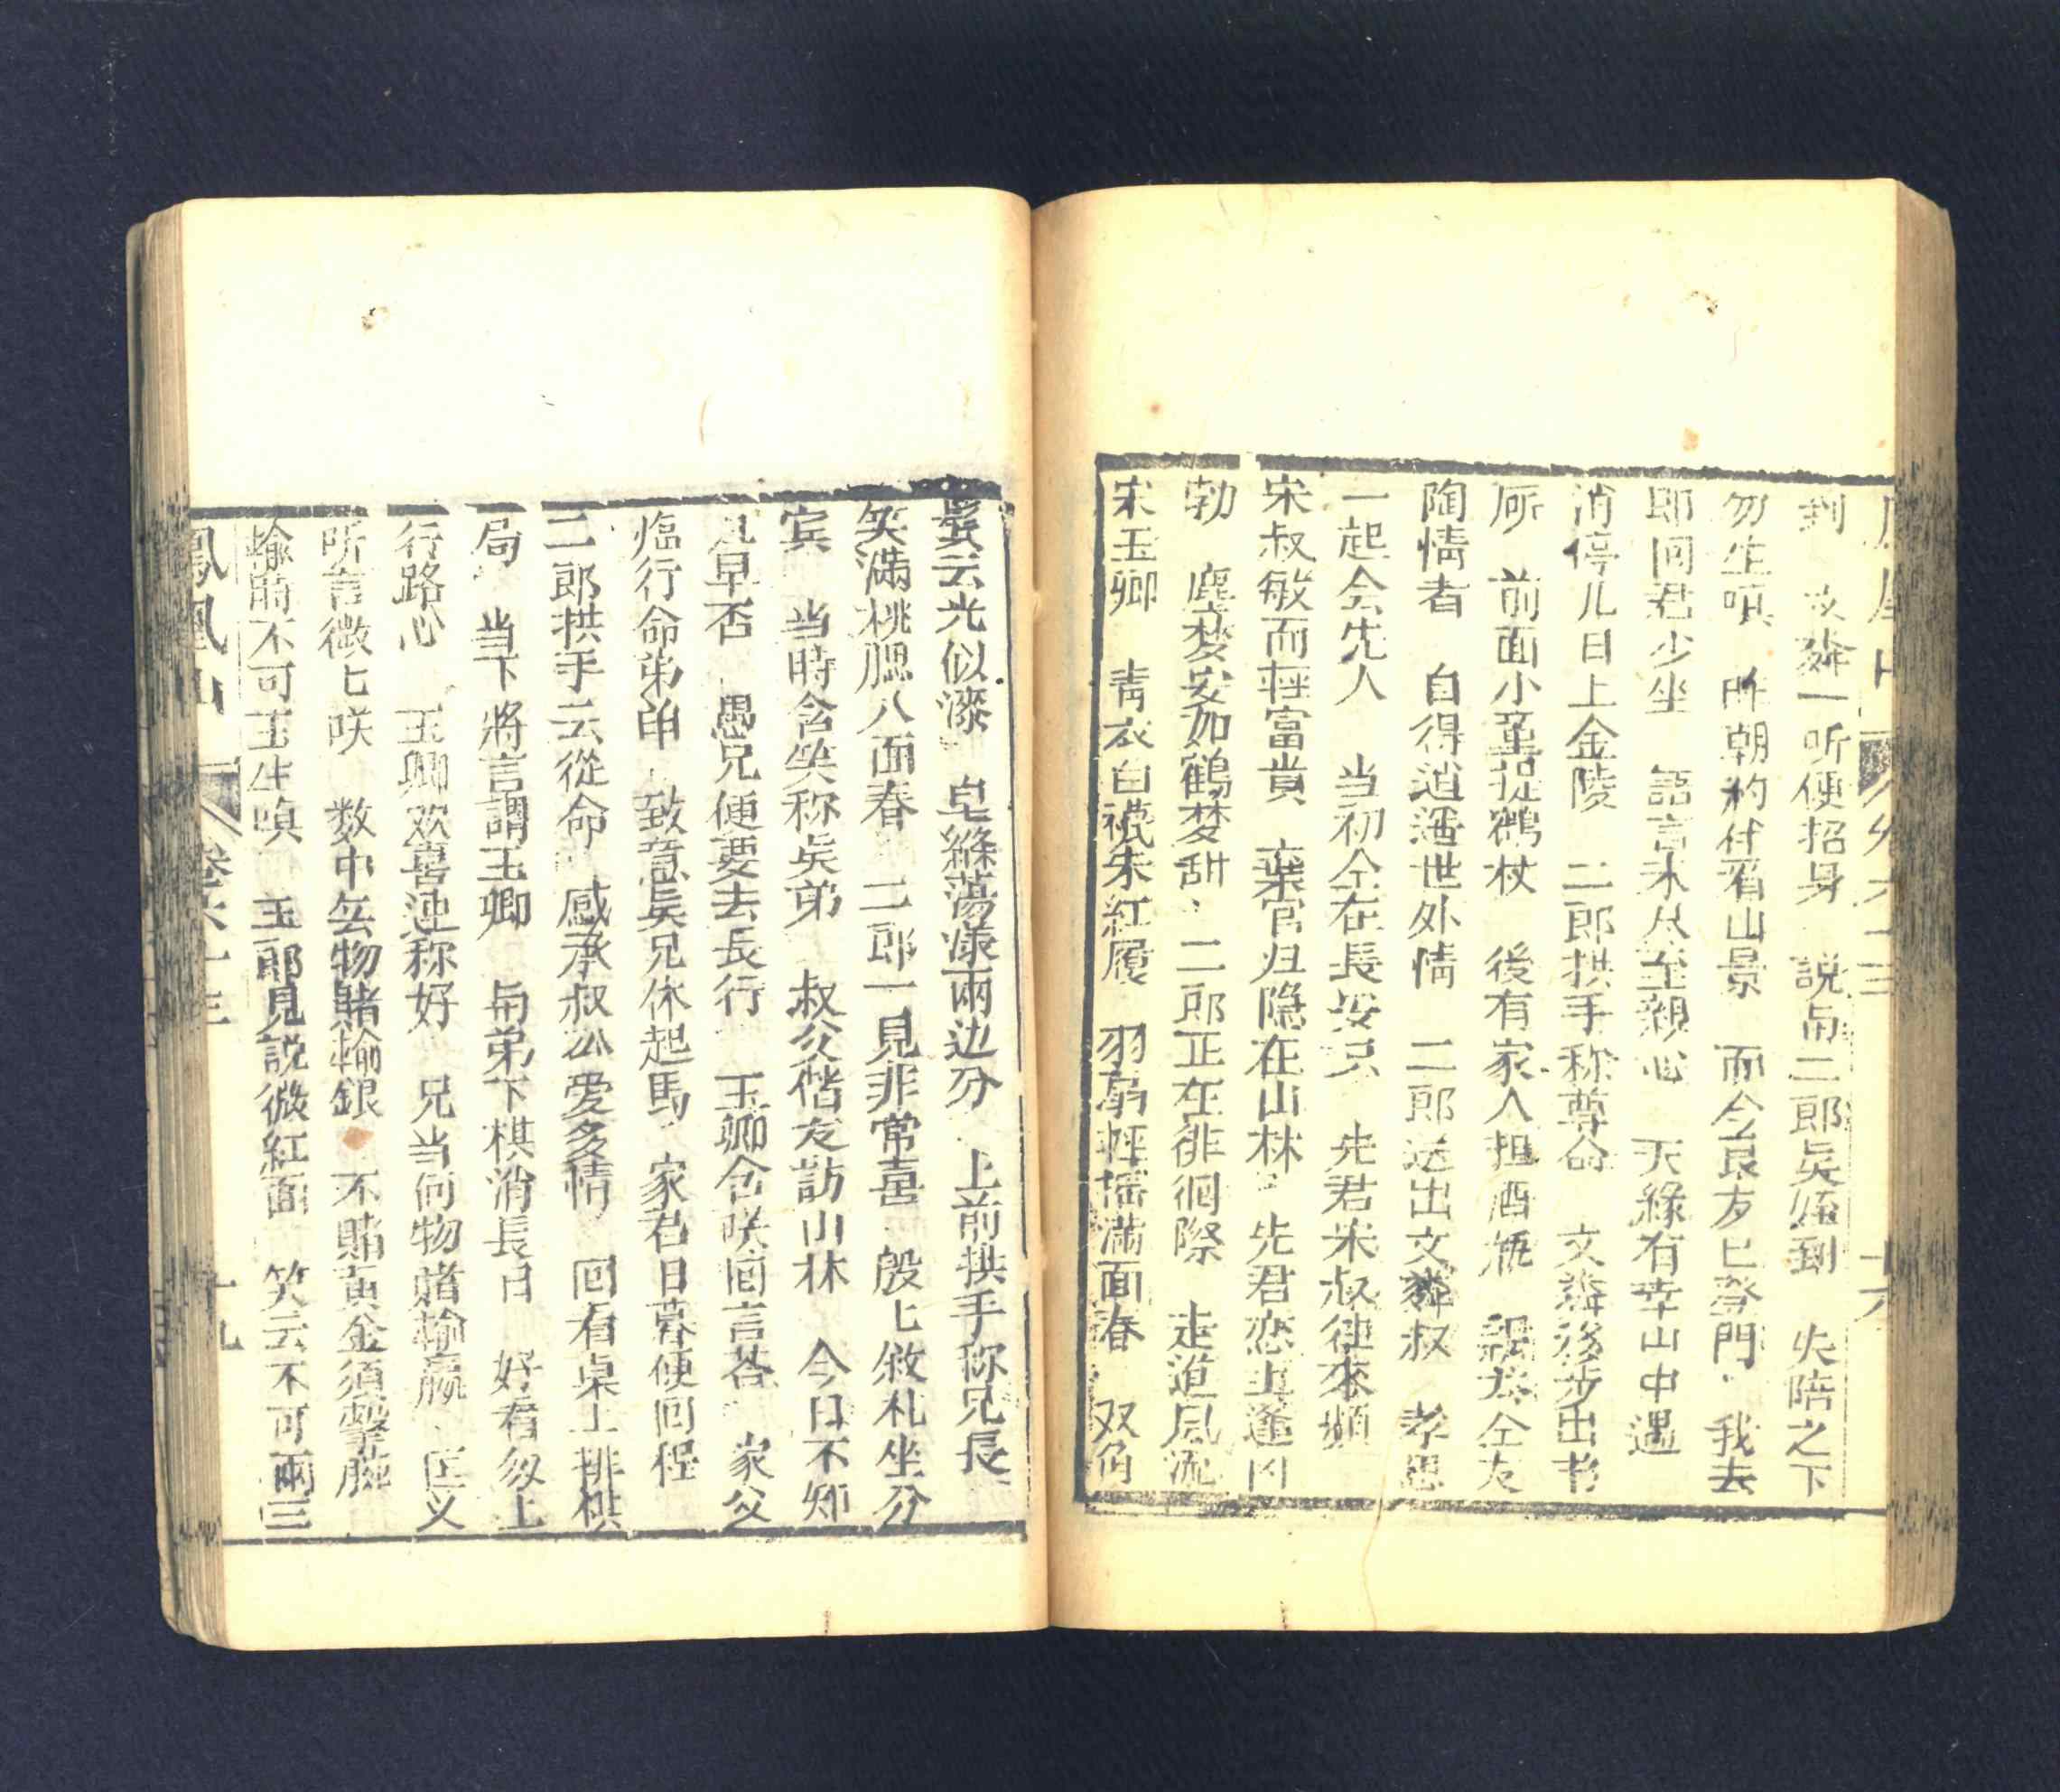 到 文粦一听便招身 説与二郎矣侄到 失陪之下
勿生嗔 昨朝約伴看山景 而今良友已登門 我去
即回君少坐 語言未尽至親心 天緣有幸山中遇
消停几日上金陵 二郎拱手称尊命 文粦移步出書
所 前面小童捉鶴杖 後有家人担酒瓶 仝友
陶情者 自得逍遥世外情 二郎送出文粦叔 孝思
一起念先人 当初仝在長安只 先君宋叔往來頻
宋叔敏而輕富貴 棄官归隐在山林 先君恋主逢凶
勃 塵夢安如鶴夢甜 二郎正在徘徊際 走進風流
宋玉卿 青衣白襪朱紅履 羽扇輕摇滿面春 双角
鬓云光似漆 皂縧蕩漾兩边分 上前拱手称兄長
笑滿桃腮八面春 二郎一見非常喜 殷匕敘礼坐分
宾 当時含笑称矣弟 叔父偕友訪山林 今日不知
早否 愚兄便要去長行 玉卿含咲囬言荅 家父
臨行命弟申 致意矣兄休起馬 家君日暮便囬程
二郎拱手云從命 感承叔公愛多情 囬看桌上排棋
局 当下將言謂玉卿 与弟下棋消長日 好看匆上
行路心 玉卿欢喜連称好 兄当何物賭輸贏 匡义
听言微匕咲 数中無物賭輸銀 不賭黄金須擊腕
輸時不可玉生嗔 玉郎見説微紅面 笑云不可兩三
鳳凰山 卷六十三 十九